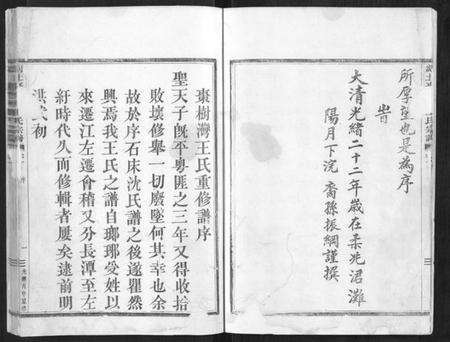 所厚望也是為序
旹
大清光緒二十二年歲在柔兆涒灘
陽月下浣 裔孫振綱謹撰
棗樹灣王氏重修譜序
聖天子既平粵匪之三年又得收拾
敗壞修舉一切廢墜何其幸也余
故於序石床沈氏譜之後遂瞿然
興焉我王氏之譜自瑯琊受姓以
來遷江左遷會稽又分長潭至左
紆時代久而修輯者屢矣遠前明
洪武初